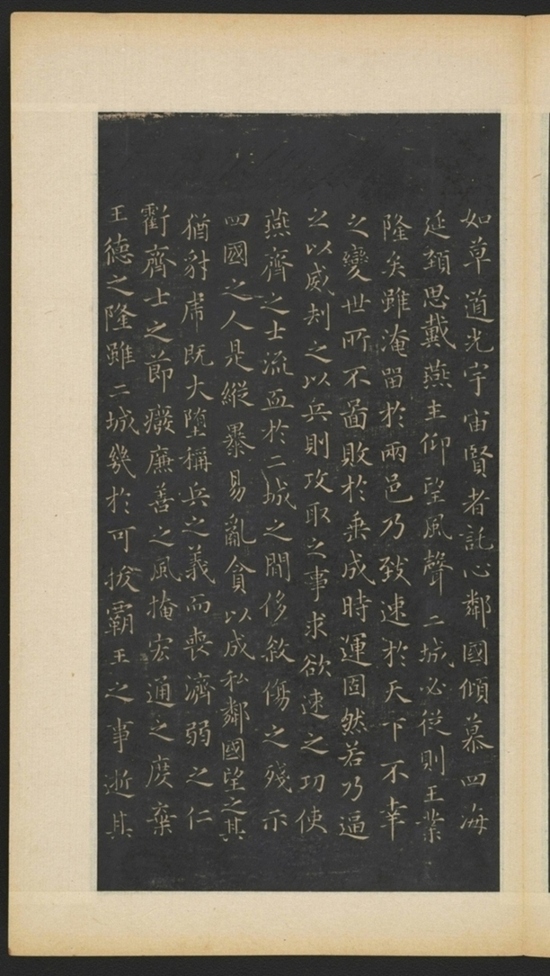 如草道光宇宙賢者託心鄰國傾慕四海
延頸思戴燕主仰望風聲二城必從則王業
隆矣雖淹留於兩邑乃致速於天下不幸
之變世所不啚敗於乗成時運固然若乃逼
之以威刦之以兵則攻取之事求欲速之功使
燕齊之士流血於二城之閒侈敘傷之殘示
四國之人是縱暴易亂貪以成私鄰國望之其
猶豺虎既大墮稱兵之義而喪濟弱之仁
虧齊士之節癈廉善之風掩宏通之度棄
王德之隆雖二城幾於可拔霸王之事逝其